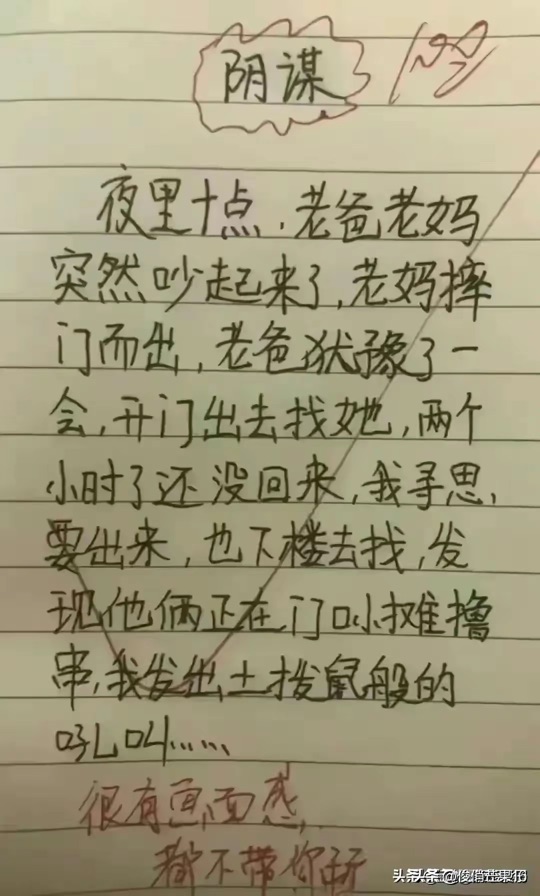 阴谋
夜里十点.老爸老妈
突然吵起来了,老妈摔
门而出,老爸犹豫了一
会,开门出去找她,两个
小时了还没回来,我寻思,
要出来,也下楼去找,发
现他俩正在门口小摊撸
串,我发出土拨鼠般的
吼叫……
很有画面感,
都不带你玩
头条 @俊俏芒果